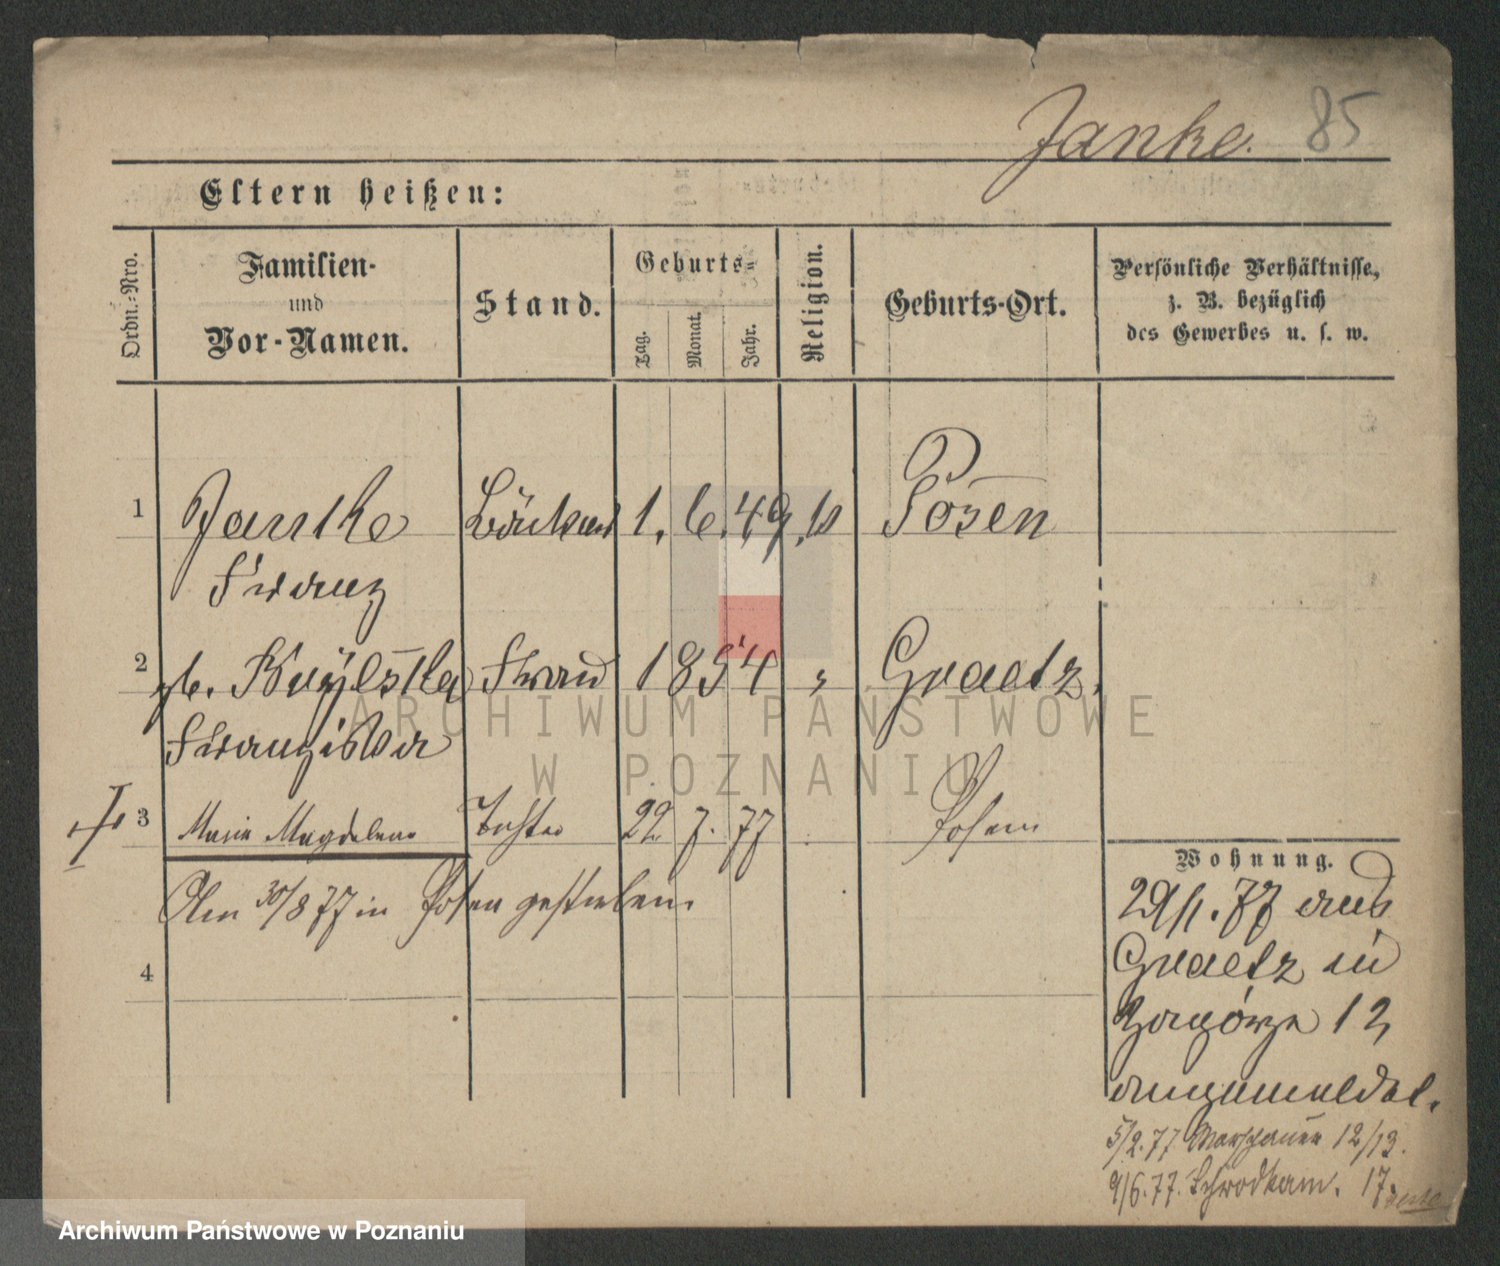 Janke. 85
Eltern heißen:
Ordn.-Nro.
Familien-
und
Vor-Namen.
Stand.
Geburts-
Tag.
Monat.
Jahr.
Religion.
Geburts-Ort.
Persönliche Verhältnisse,
z. B. bezüglich
des Gewerbes u. s. w.
1 Janke 1. 6. 49. k Posen
Franz
2 gb. Frau 1854 " Graetz.
Franziska
ARCHIWUM PAŃSTWOWE
W POZNANIU
3 Maria Magdalena Tochter 22 7. 77 Posen
Am 30/8 77 in Posen gestorben.
4
Wohnung.
29/1. 77 aus
Graetz in
Zagórze 12
angemeldet.
5/2. 77 Warschauer 12/13.
9/6. 77. Schrodkam. 17.
Archiwum Państwowe w Poznaniu